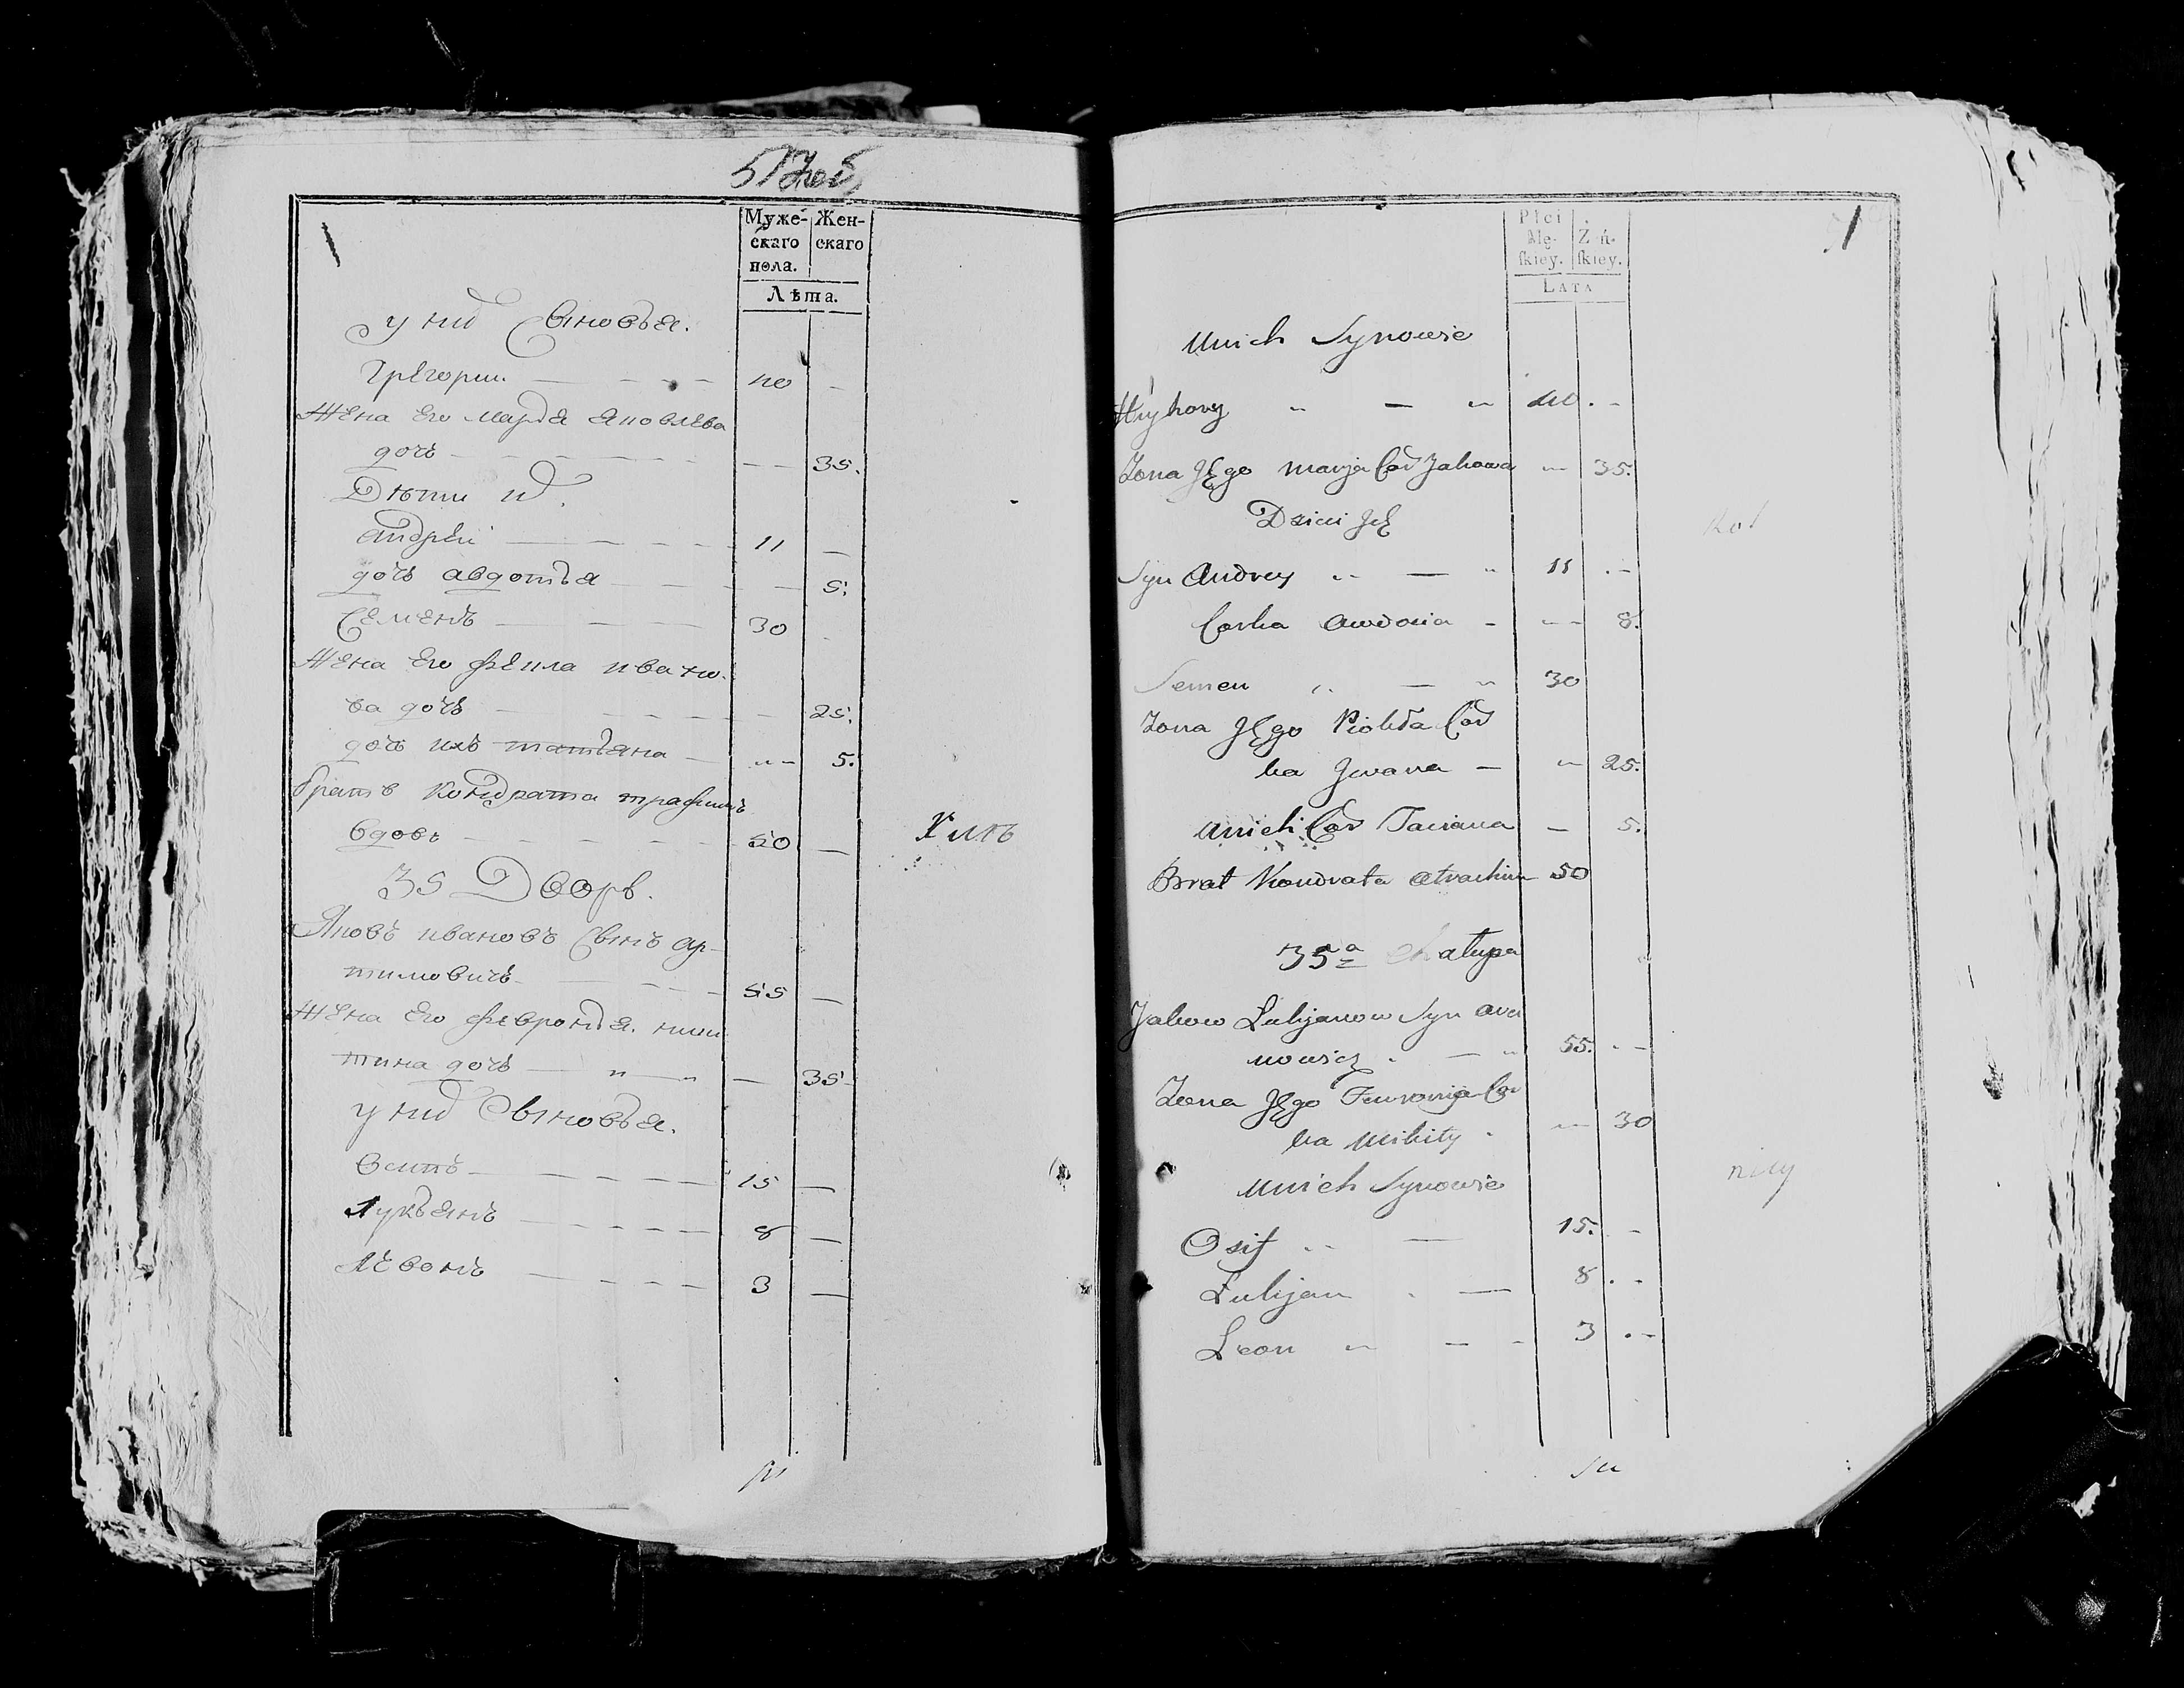 Муже-
скаго
пола.
Жен-
скаго
Лѣта.
у них Сыновья.
Грегори 40 -
Жена Его марья яковлева
дочь - - 35.
Дѣти их.
андрей 11 -
дочь авдотья - 5.
Семенъ 30 -
Жена Его феила ивано-
ва дочь - 25.
дочь ихъ татьяна - 5.
братъ кондрата
вдовъ 50 -
35 Дворъ.
Яковъ ивановъ Сынъ ар-
тимовичъ 55 -
Жена Его февронья ники
тина дочь - 35
у них Сыновья.
Осипъ 15 -
Лукъянъ 8 -
Левонъ 3 -
Płci
Mę-
ſkiey.
Żeń-
ſkiey.
LATA
unich Synowie
Hryhory 40 -
Zona Jego marja Cor Jakowa - 35.
Dzieci Jch
Syn Andrey 11 -
Corka Awdosia - 8.
Semen 30
Zona Jego Cor
ka Jwana - 25.
unich Cor Taciana - 5.
Brat Kondrata 50
35ta Chałupa
Jakow Łukjanow Syn
nowicz 55. -
Zona Jego Fewronija Cor
ka Mikity - 30
unich Synowie
Osif 15. -
Łukjan 8 -
Leon 3 -